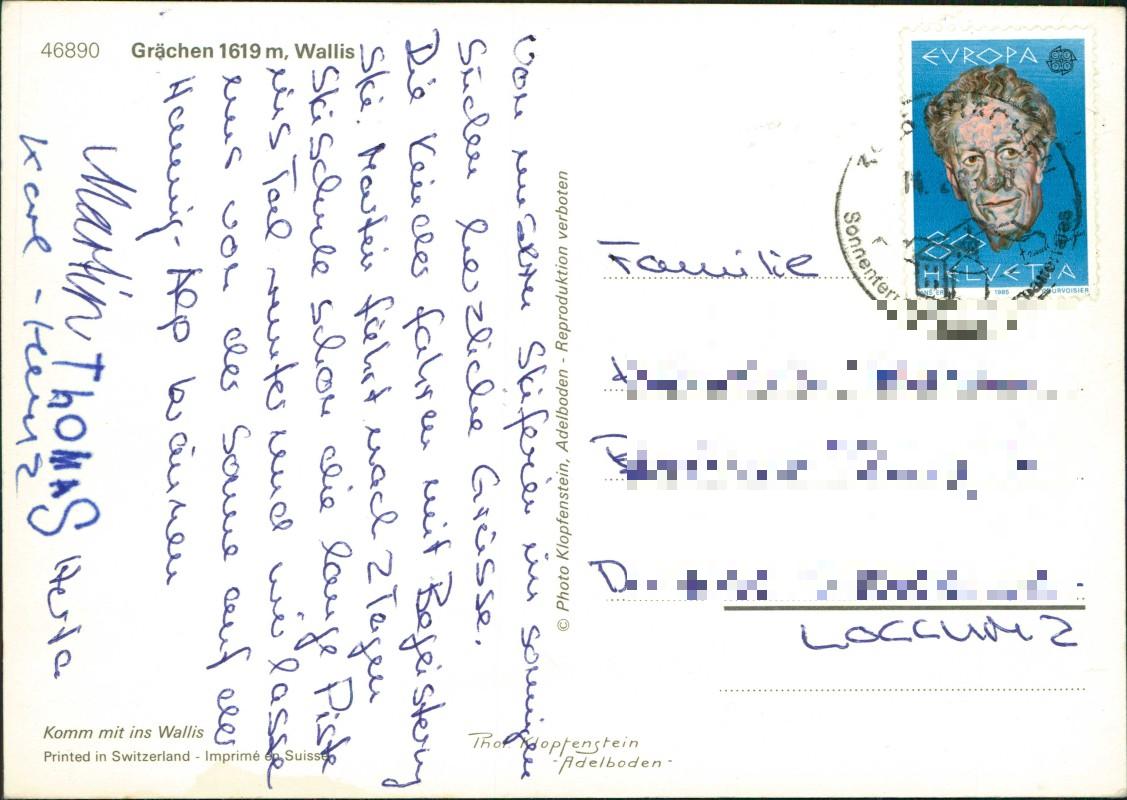 46890 Grächen 1619 m, Wallis
Von unseren Skiferien im sonnigen
Süden herzliche Grüsse.
Die Kinder fahren mit Begeisterung
Ski. Martin fährt nach 2 Tagen
Skischule schon die lange Piste
ins Tal runter und wir lasse
uns von der Sonne auf der
Hannig-Alp wärmen
Martin, THOMAS Herta
Karl-Heinz
Komm mit ins Wallis
Printed in Switzerland - Imprimé en Suisse
Phot. Klopfenstein
-Adelboden-
© Photo Klopfenstein, Adelboden - Reproduktion verboten
EVROPA
80
HELVETIA
1985 COURVOISIER
Sonnenterr
Familie
LOCCUM 2